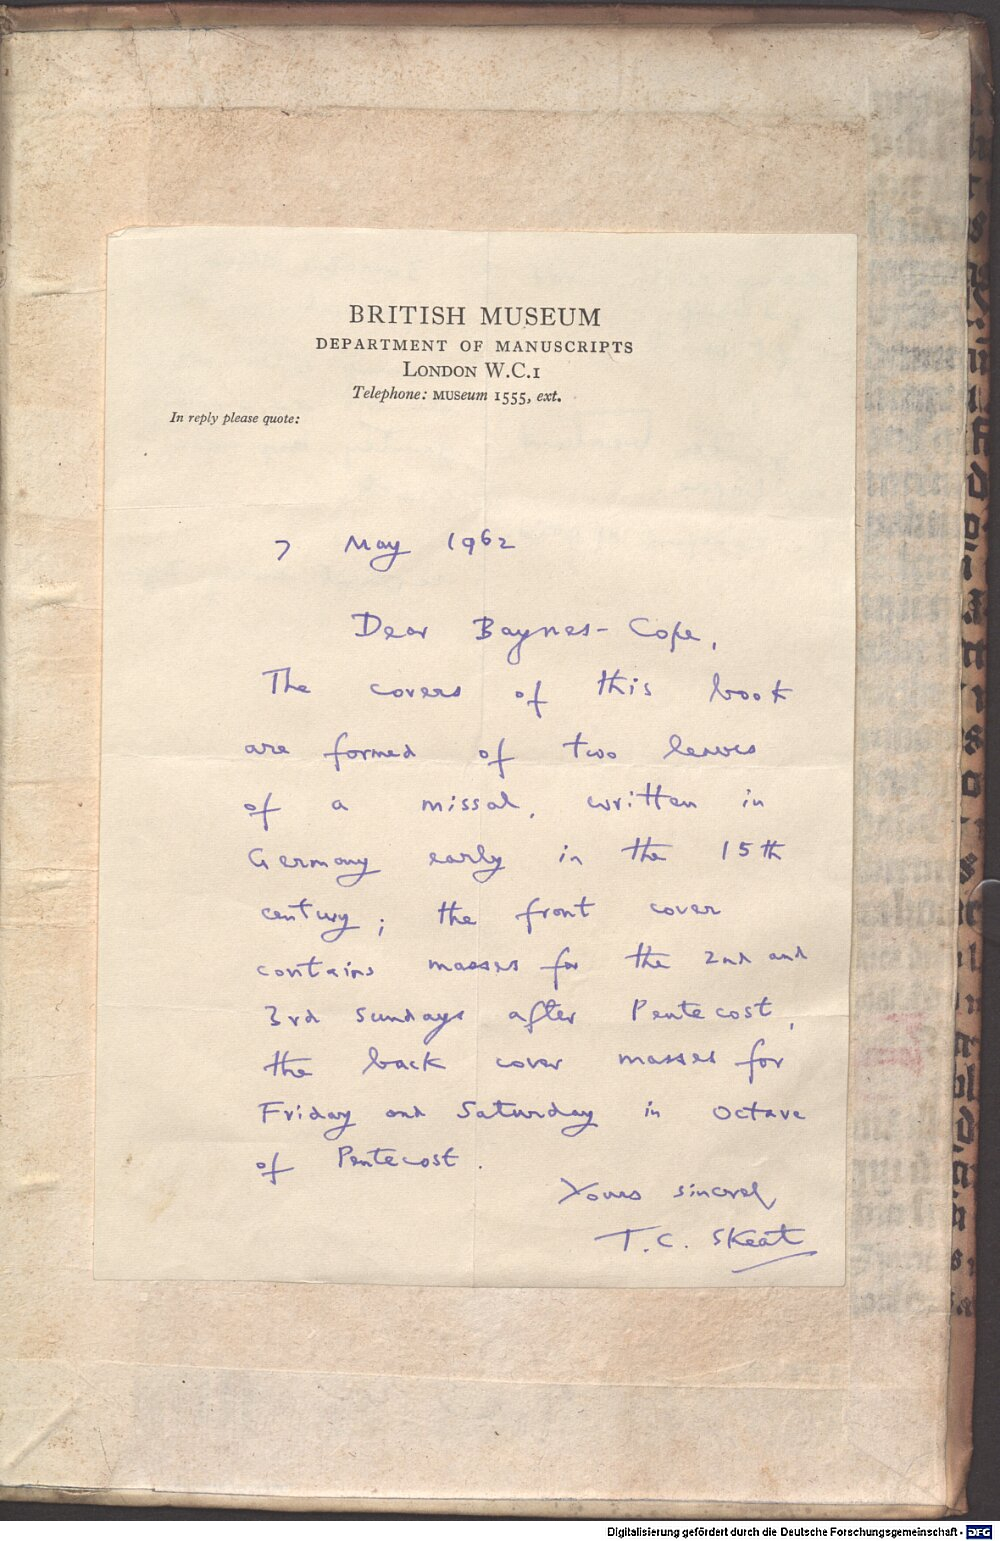 BRITISH MUSEUM
DEPARTMENT OF MANUSCRIPTS
LONDON W.C.1
Telephone: MUSeum 1555, ext.
In reply please quote:
7 May 1962
Dear Baynes-Cope,
The covers of this book
are formed of two leaves
of a missal, written in
Germany early in the 15th
century; the front cover
contains masses for the 2nd and
3rd Sundays after Pentecost,
the back cover masses for
Friday and Saturday in octave
of Pentecost.
Yours sincerely
T.C. Skeat
Digitalisierung gefördert durch die Deutsche Forschungsgemeinschaft - DFG